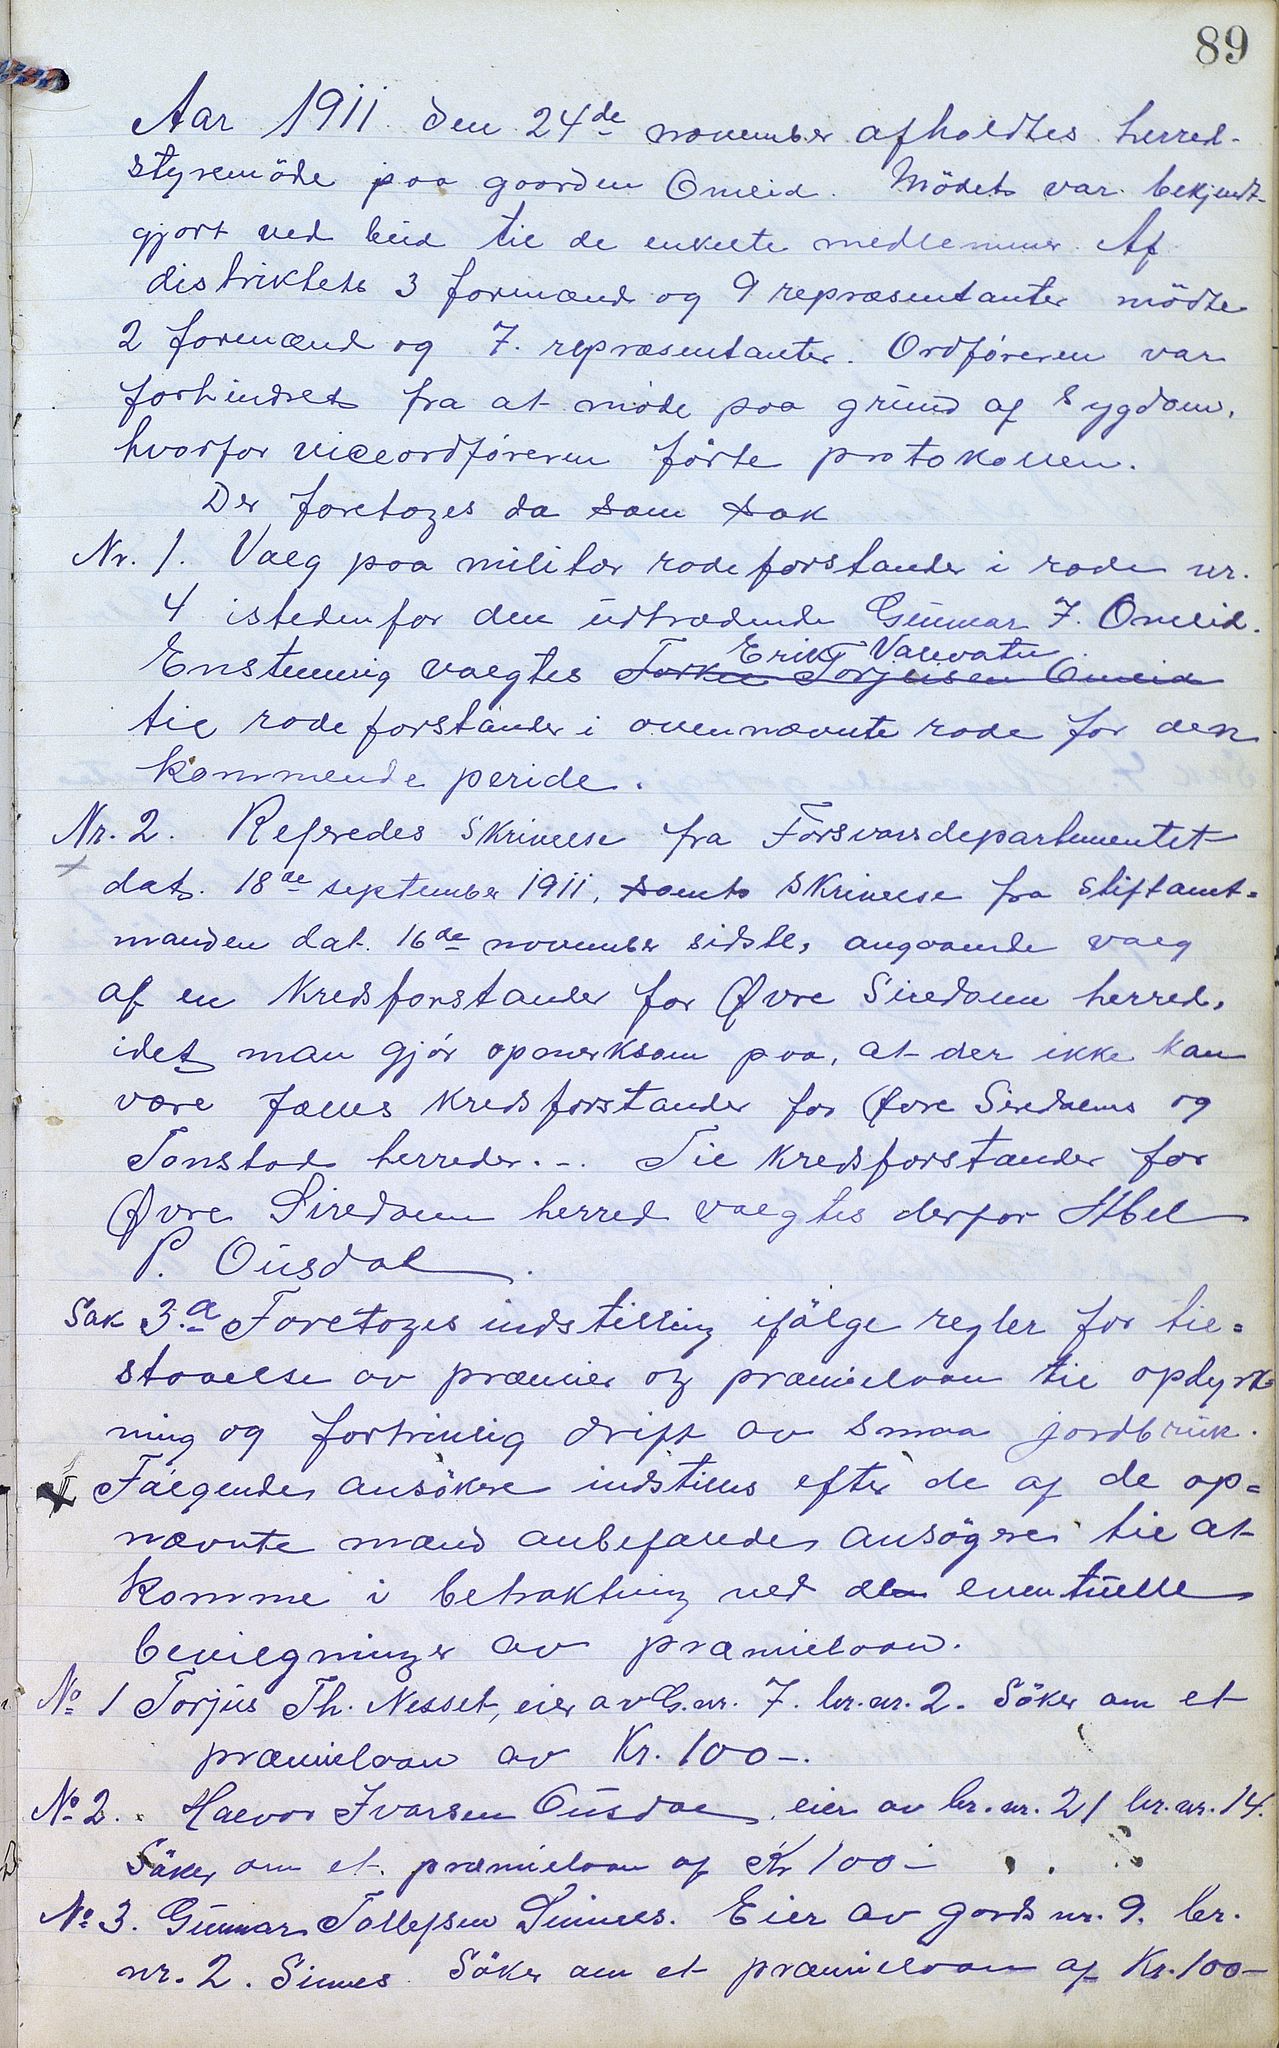 89
Aar 1911 den 24de november afholdtes herred-
styremöde paa gaarden Omlid. Mödet var bekjendt-
gjort ved bud til de enkelte medlemmer. Af
distriktets 3 formænd og 9 repræsentanter mödte
2 formænd og 7. repræsentanter. Ordföreren var
forhindret fra at möde paa grund af sygdom,
hvorfor viceordföreren förte protokollen.
Der foretoges da som sak
Nr. 1. Valg paa militær rodeforstander i rode nr.
4 istedenfor den udtrædende Gunnar T. Omlid.
Erik T. Valevatn
Enstemmig valgtes Torkel Torjusen Omlid
til rodeforstander i ovennævnte rode for den
kommende peride.
Nr. 2. Refredes skrivelse fra Forsvarsdepartementet
dat. 18de september 1911, samt skrivelse fra stiftamt=
manden dat. 16de november sidstl, angaaende valg
af en kredsforstander for Øvre Siredalen herred,
idet man gjör opmerksom paa, at der ikke kan
være fælles kredsforstander for Øvre Siredalens og
Tonstad herreder. -. Til kredsforstander for
Øvre Siredalen herred valgtes derfor Abel
P. Ousdal.
Sak 3.a Foretoges indstilling ifölge regler for til=
staaelse av præmier og præmielaan til opdyrk=
ning og fortrinlig drift av smaa jordbruk.
Fölgende ansökere indstilles efter de af de op=
nævnte mænd anbefalede ansögere til at
komme i betraktning ved de eventuelle
bevilgninger av præmielaan.
No 1 Torjus Th. Nesset, eier av G.nr. 7. br.nr. 2. Söker om et
præmielaan av Kr. 100-.
No 2. Halvor Ivarsen Ousdal, eier av br. nr. 21 br. nr. 14.
Söker om et præmielaan af Kr 100-
No 3. Gunnar Tollefsen Sinnes. Eier av gards nr. 9. br.
nr. 2. Sinnes. Söker om et præmielaan af Kr. 100-